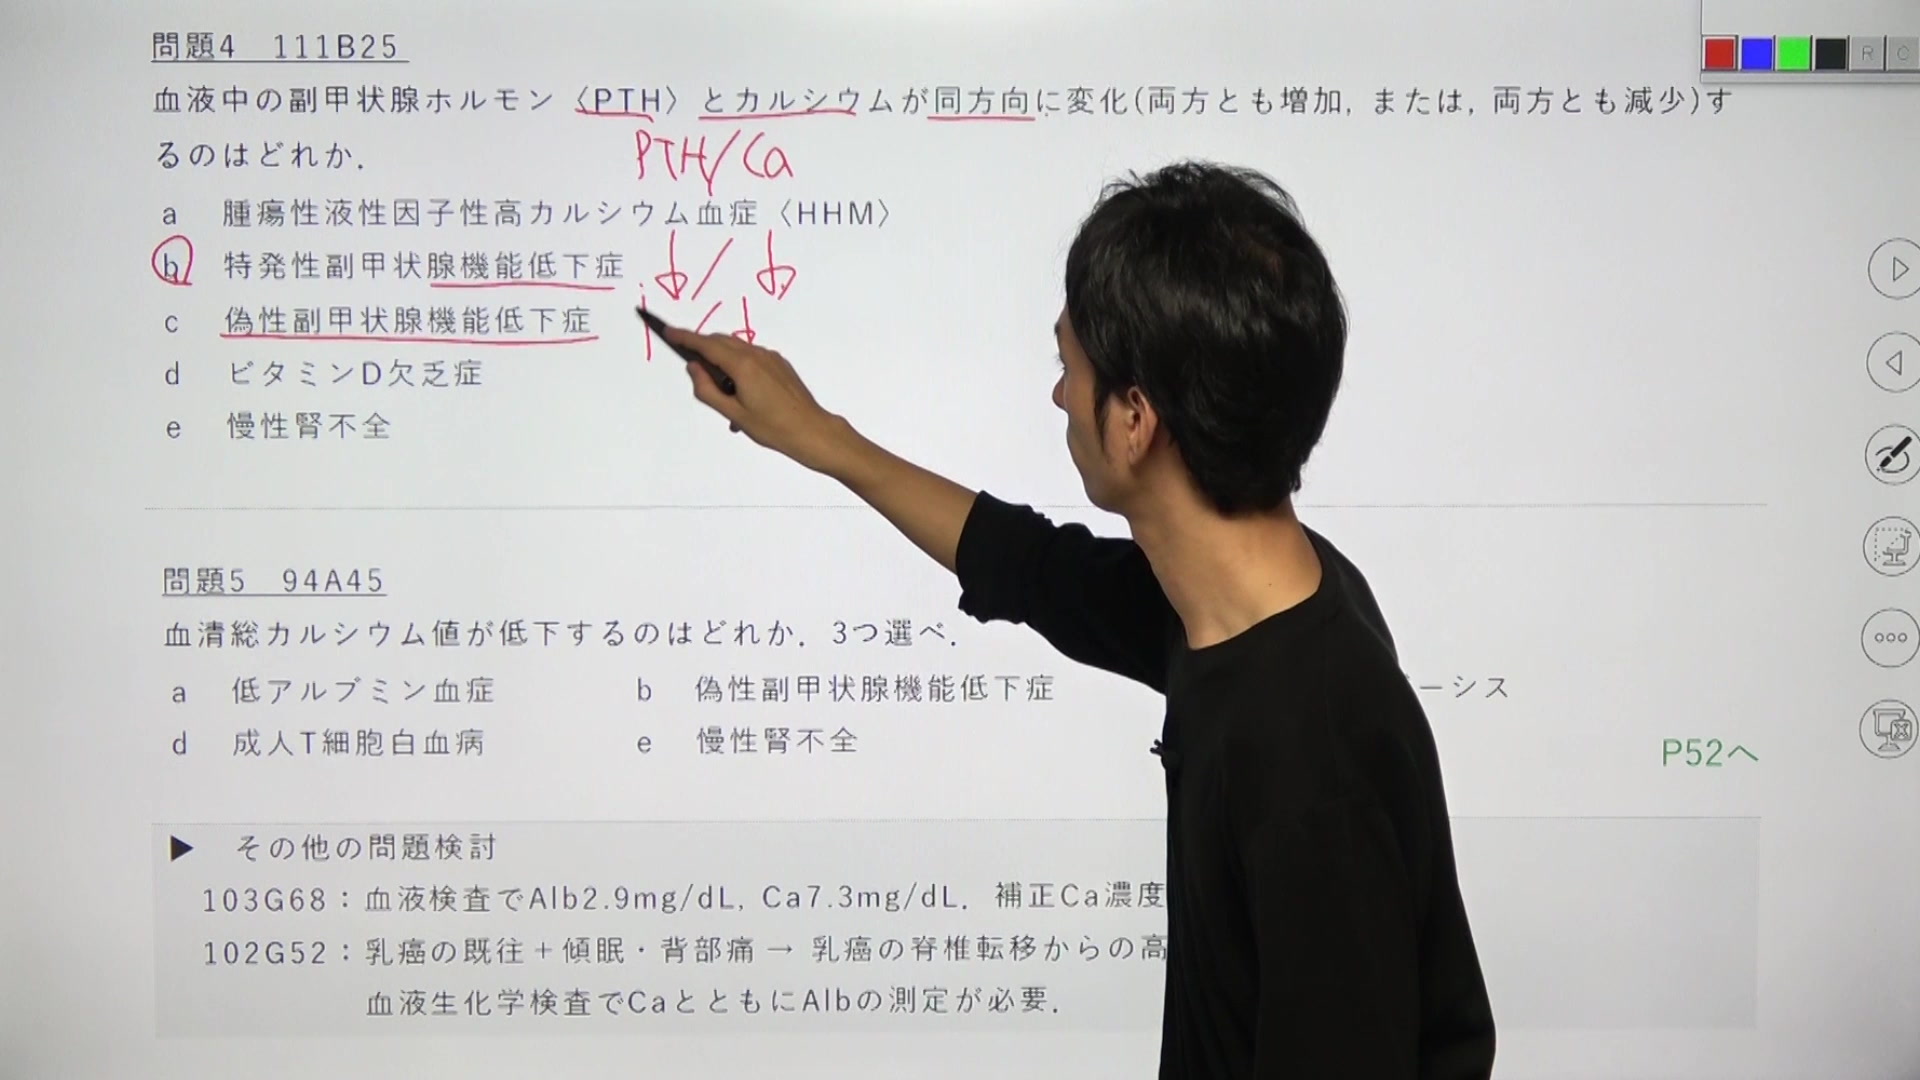 問題4 111B25
血液中の副甲状腺ホルモン〈PTH〉とカルシウムが同方向に変化(両方とも増加, または, 両方とも減少)す
るのはどれか.
PTH/Ca
a 腫瘍性液性因子性高カルシウム血症〈HHM〉
b 特発性副甲状腺機能低下症 ↓/↓
c 偽性副甲状腺機能低下症
d ビタミンD欠乏症
e 慢性腎不全
問題5 94A45
血清総カルシウム値が低下するのはどれか. 3つ選べ.
a 低アルブミン血症 b 偽性副甲状腺機能低下症 ーシス
d 成人T細胞白血病 e 慢性腎不全
P52へ
▶ その他の問題検討
103G68：血液検査でAlb2.9mg/dL, Ca7.3mg/dL. 補正Ca濃度
102G52：乳癌の既往＋傾眠・背部痛→ 乳癌の脊椎転移からの高
血液生化学検査でCaとともにAlbの測定が必要.
R C